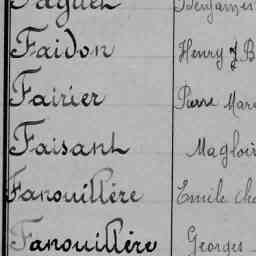 Faidon Henry J B
Fairier Pierre Mar
Faisant Magloir
Fanouillère Emile Cha
Fanouillère Georges